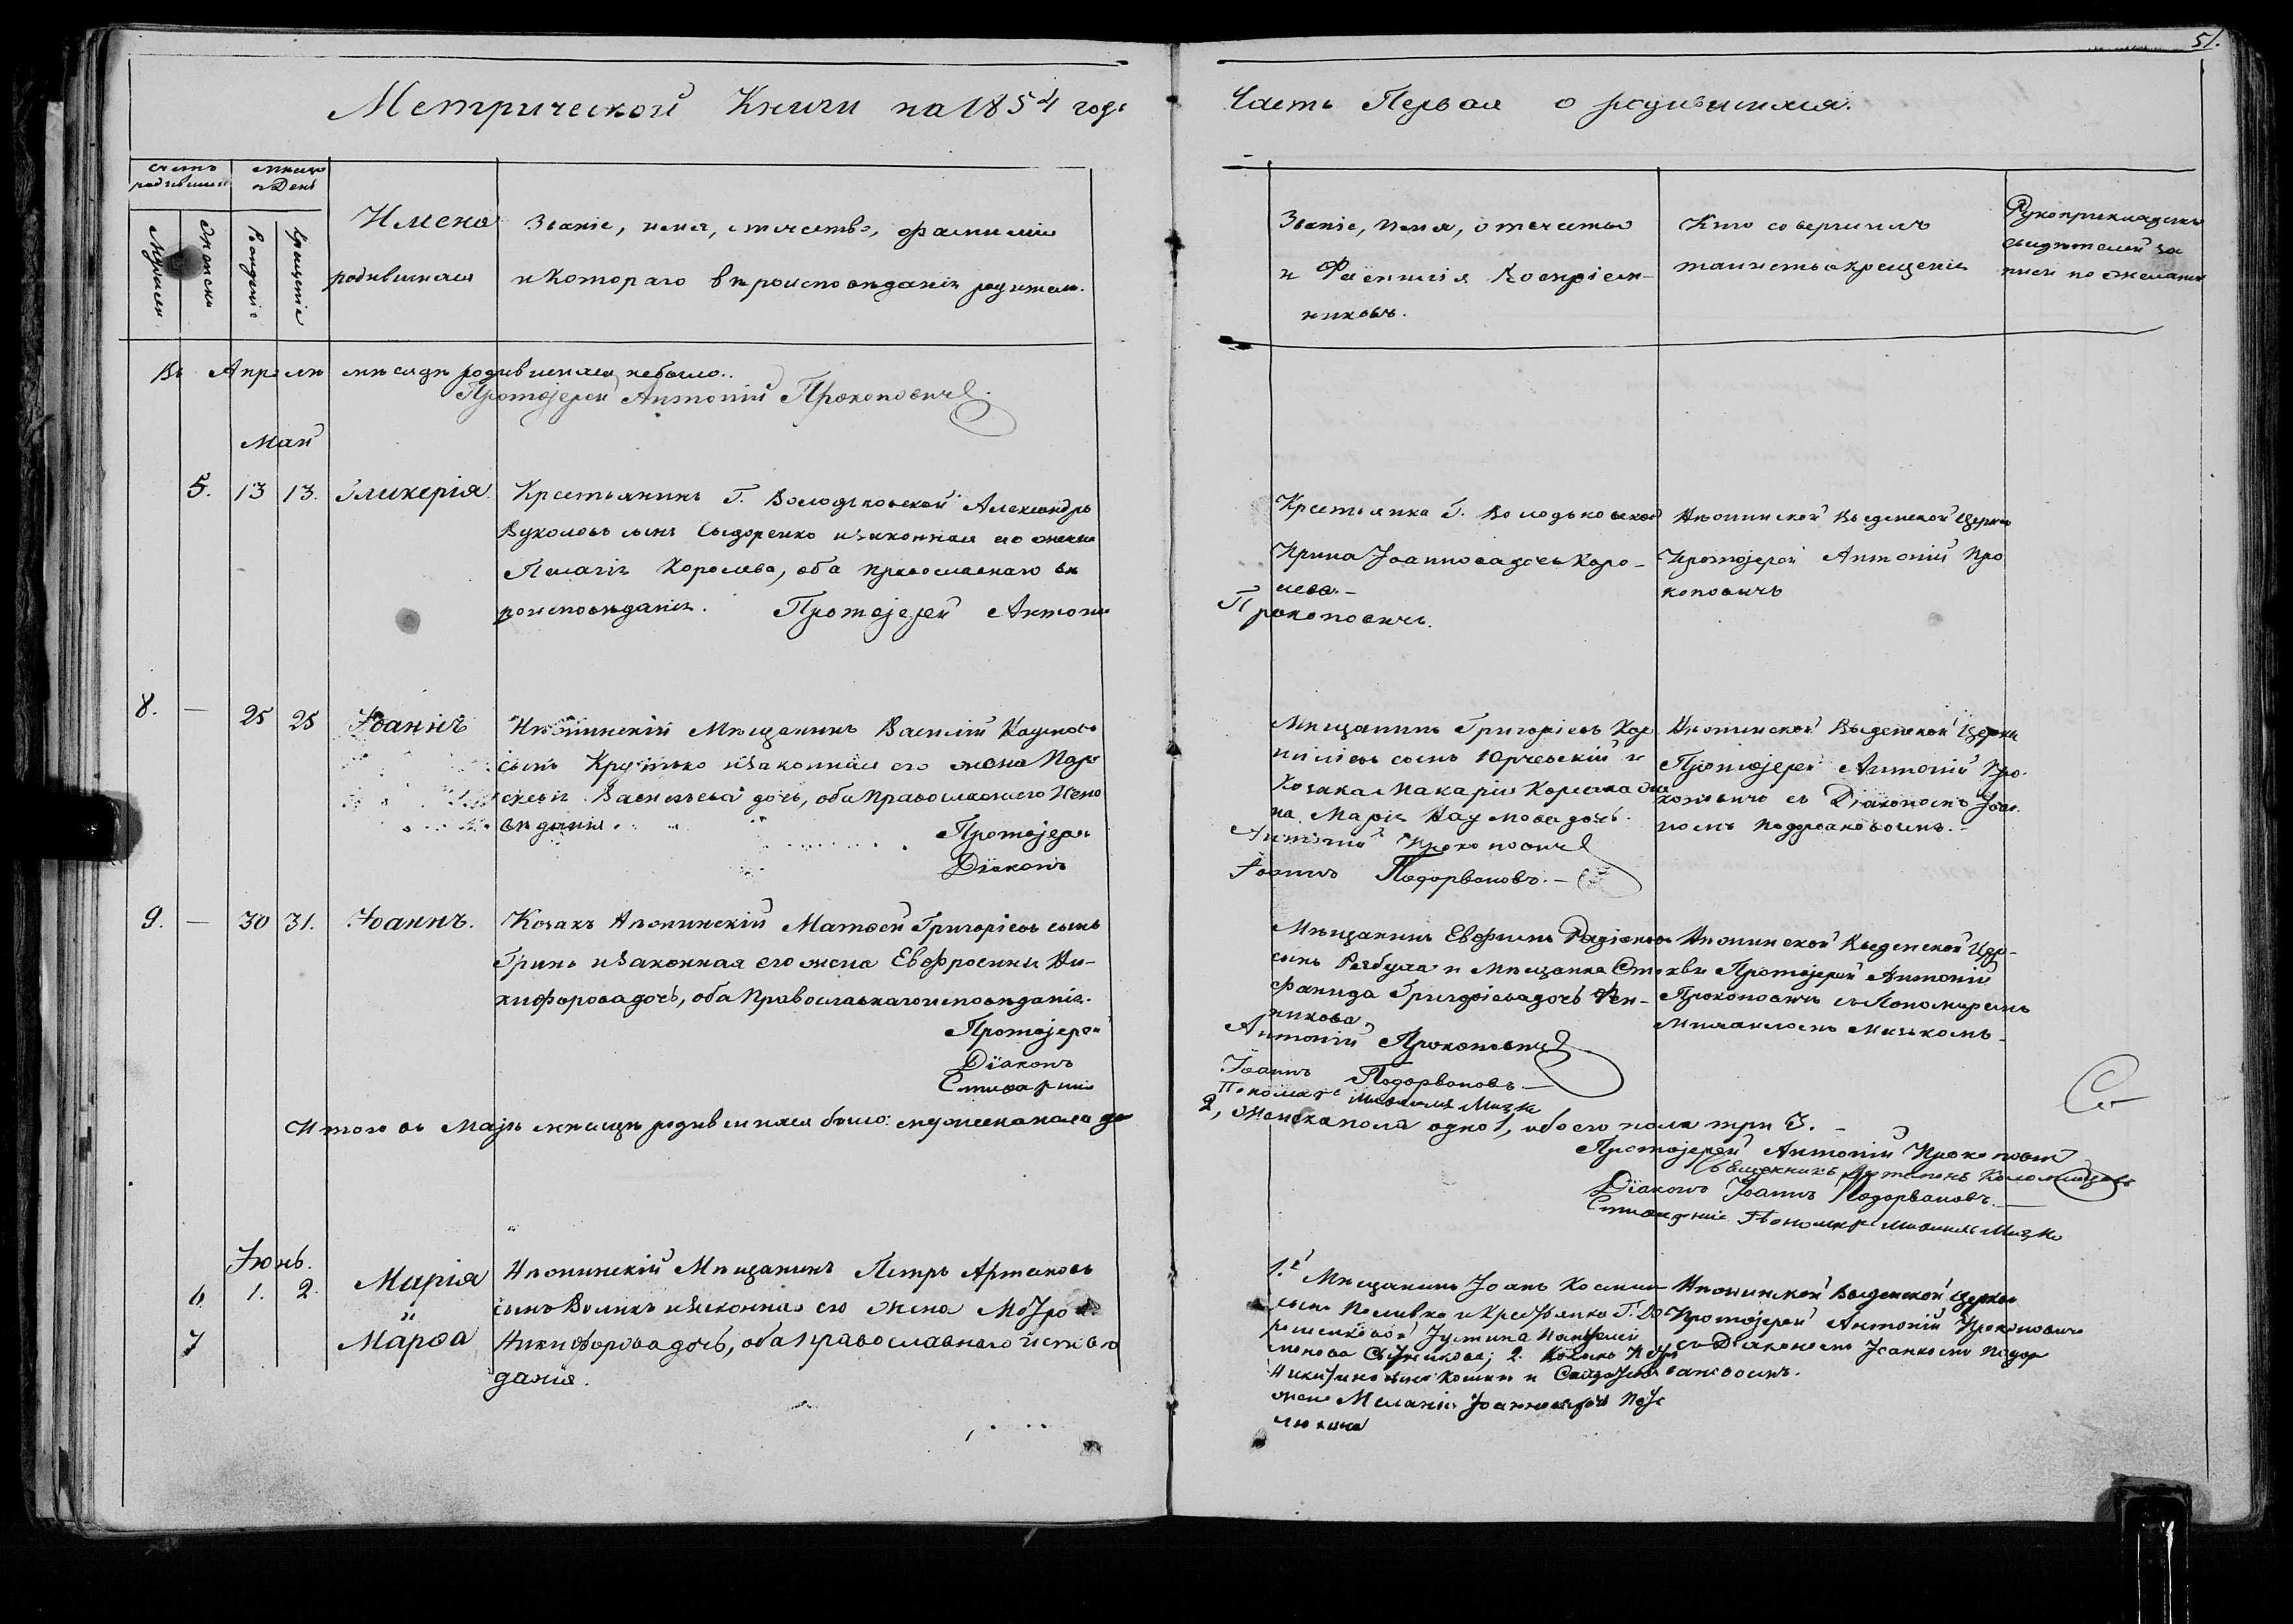 51.
Метрической Книги на 1854 годъ
Часть Первая о родившихся.
Счетъ родившихся
Мѣсяцъ и День
Мужеска
Женска
Рожденіе
Крещеніе
Имена
родившихся
Званіе, имя, отчество, фамилія
и котораго вѣроисповѣданія родители.
Званіе, имя, отчество
и Фамилія Воспріем-
никовъ.
Кто совершилъ
таинство крещенія
Рукоприкладство
свидѣтелей за
писи по желанію
Въ Апрелѣ мѣсяцѣ родившихся небыло..
Протоіерей Антоній Прокоповичъ
Май
5. 13 13. Гликерія.
Крестьянинъ Г. Володьковской Александръ
Вуколовъ сынъ Сыдоренко изаконная его жена
Пелагія Королева, оба православнаго вѣ
роисповѣданія. Протоіерей Антоній
Крестьянка Г. Володьковской
Ирина Іоаннова дочь Коро-
лева.-
Прокоповичъ.
Нѣжинской Введенской Церкви
Протоіерей Антоній Про
коповичъ
8. — 25 25 Іоаннъ
Нѣжинскій Мѣщанинъ Василій Наумовъ
сынъ Крутько изаконная его жена Пара
скевія Васильева дочь, оба Православнаго Испо
вѣданія.
Протоіерей
Діаконъ
Мѣщанинъ Григорій
сынъ Юрчевскій и
Козака Макарія
на Марія Наумова дочь.
Антоній Прокоповичъ
Іоаннъ Подорвановъ.—
Нѣжинской Введенской Церкви
Протоіерей Антоній Про-
коповичъ съ Діакономъ Іоан
номъ Подорвановымъ.-
9. — 30 31. Іоаннъ.
Козакъ Нѣжинскій Матѳей Григорьевъ сынъ
Гринь изаконная его жена Евфросинія Ни-
кифорова дочь, оба Православнаго исповѣданія.
Протоіерей
Діаконъ
Стихарный
Мѣщанинъ Евфимъ Радіоновъ
сынъ Рябуха и Мѣщанка Сте
фанида Григорьева дочь Фен-
никова.
Антоній Прокоповичъ
Іоаннъ Подорвановъ.—
Пономарь Михаилъ
Нѣжинской Введенской Цер-
кви Протоіерей Антоній
Прокоповичъ съ Пономаремъ
Михаиломъ
Итого въ Маіѣ мѣсяцѣ родившихся было: мужеска пола два
2, женска пола одно 1, обоего пола три 3. —
Протоіерей Антоній Прокоповичъ
Священникъ
Діаконъ Іоаннъ Подорвановъ.—
Стихарный Пономарь Михаилъ
Іюнь.
6 1. 2. Марія
и
7 Марѳа
Нѣжинскій Мѣщанинъ Петръ Артемовъ
сынъ Воликъ изаконная его жена Мотрона
Никифорова дочь, оба православнаго исповѣ
данія.
1.е Мѣщанинъ Іоанъ Косминъ
сынъ и Крестьянка Г.
Іустина
2. Козакъ Петръ
Никитинъ сынъ
жена Меланія Іоаннова дочь
Нѣжинской Введенской Церкви
Протоіерей Антоній Прокоповичъ
съ Діакономъ Іоанномъ Подор
вановымъ.